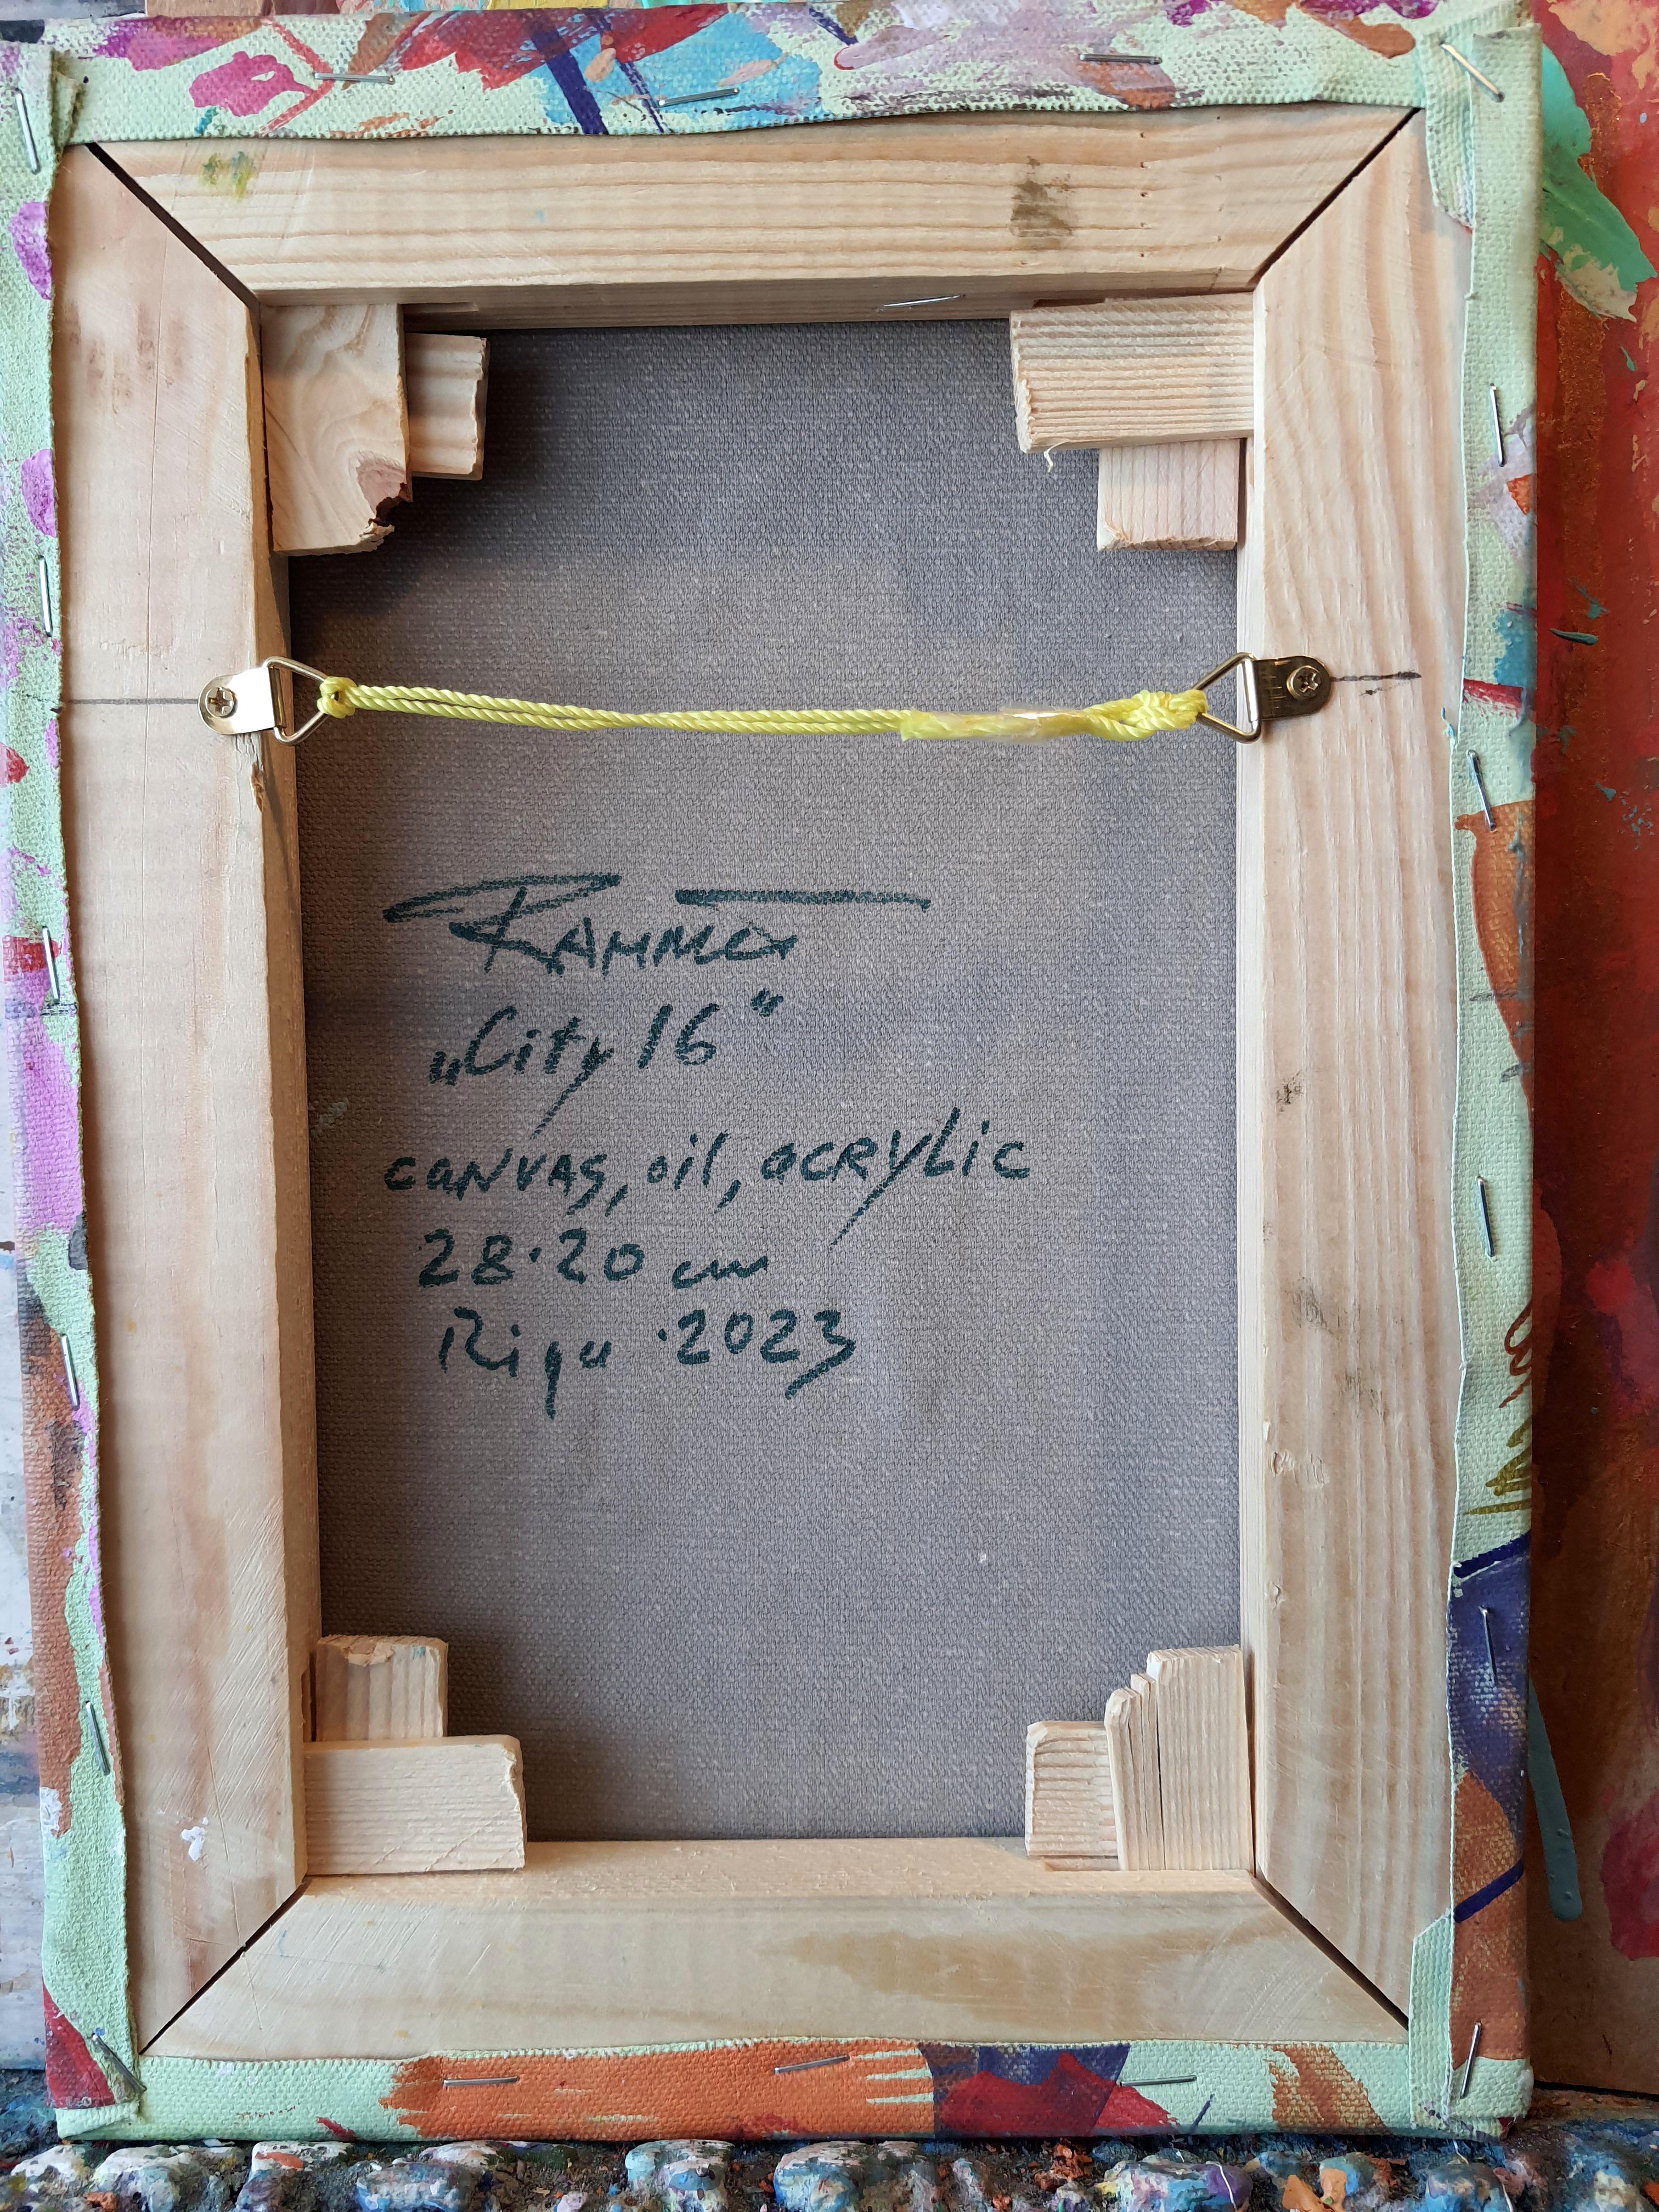 „City 16“
canvas, oil, acrylic
28·20 cm
Riga ·2023